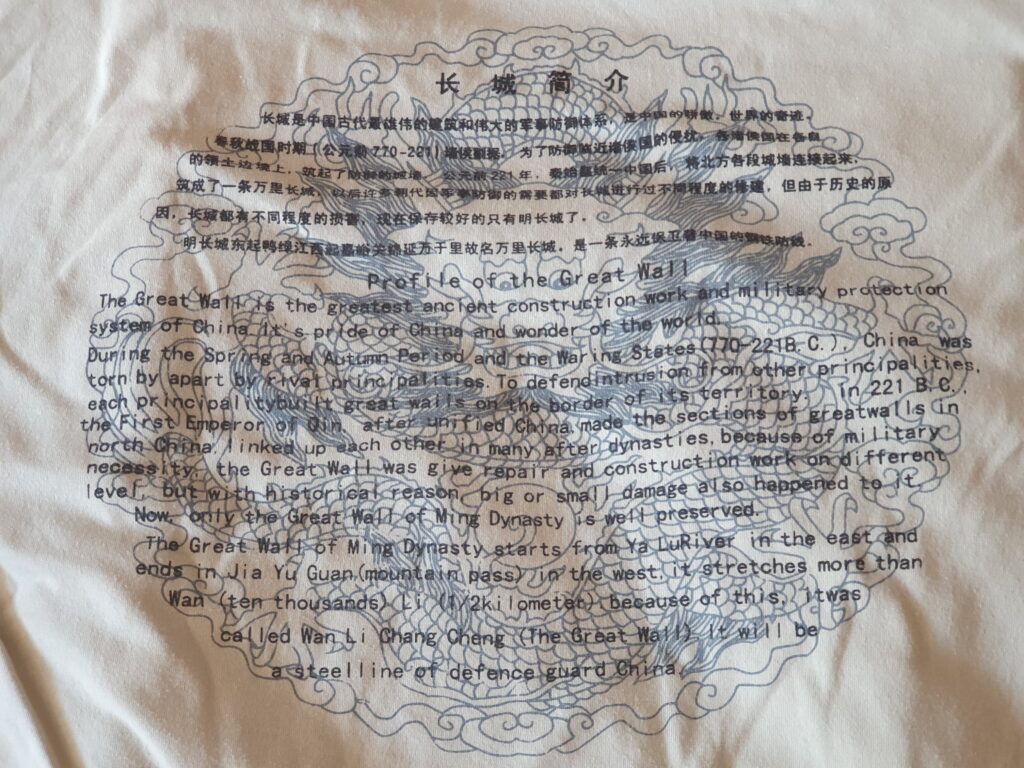 长城简介
长城是中国古代最雄伟的建筑和伟大的军事防御体系，是中国的骄傲，世界的奇迹。
春秋战国时期（公元前770-221）诸侯割据，为了防御临近诸侯国的侵扰，各诸侯国在各自
的领土边境上，筑起了防御的城墙，公元前221年，秦始皇统一中国后，将北方各段城墙连接起来，
筑成了一条万里长城，以后许多朝代因军事防御的需要都对长城进行过不同程度的修建，但由于历史的原
因，长城都有不同程度的损害，现在保存较好的只有明长城了。
明长城东起鸭绿江西起嘉峪关绵延万千里故名万里长城，是一条永远保卫着中国的钢铁防线.
Profile of the Great Wall
The Great Wall is the greatest ancient construction work and military protection
system of China it's pride of China and wonder of the world.
During the Spring and Autumn Period and the Waring States(770-221B.C.), China was
torn by apart by rival principalities. To defendintrusion from other principalities,
each principalitybuilt great walls on the border of its territory. in 221 B.C.,
the First Emperor of Qin, after unified China, made the sections of greatwalls in
north China, linked up each other, in many after dynasties, because of military
necessity, the Great Wall was give repair and construction work on different
level, but with historical reason, big or small damage also happened to it.
Now, only the Great Wall of Ming Dynasty is well preserved.
The Great Wall of Ming Dynasty starts from Ya LuRiver in the east and
ends in Jia Yu Guan(mountain pass) in the west, it stretches more than
Wan (ten thousands) Li (1/2kilometer), because of this, itwas
called Wan Li Chang Cheng (The Great Wall). It will be
a steelline of defence guard China.